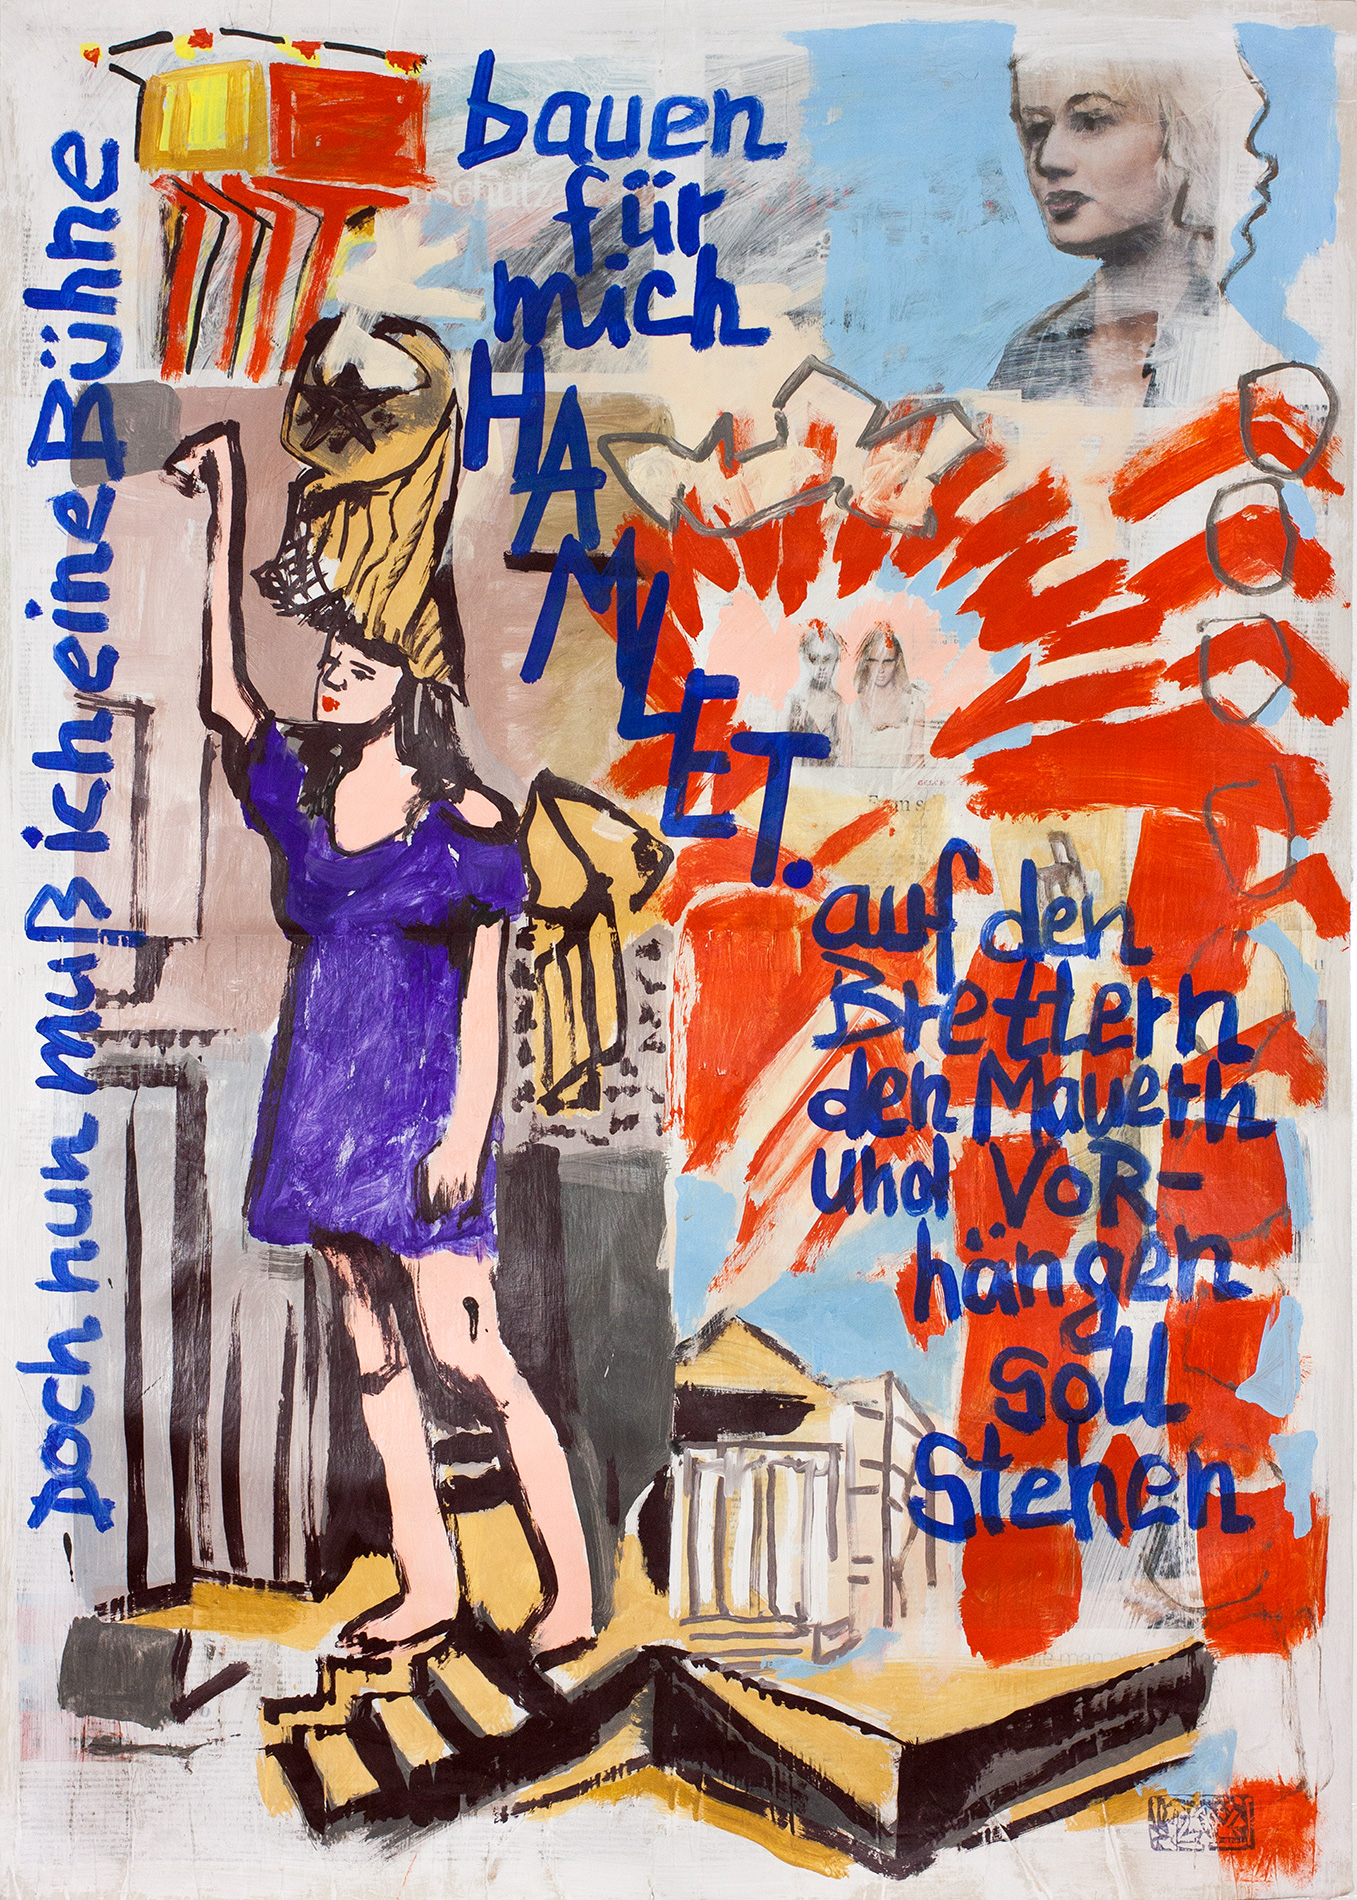 Doch nun muß ich eine Bühne
bauen
für
mich
HAMLET.
auf den
Brettern
den Mauern
und VoR-
hängen
soll
Stehen